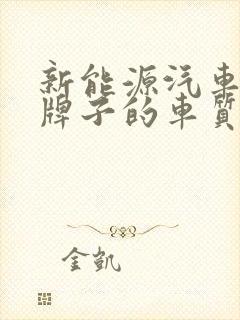 新能源汽車
牌子的車質
金凱